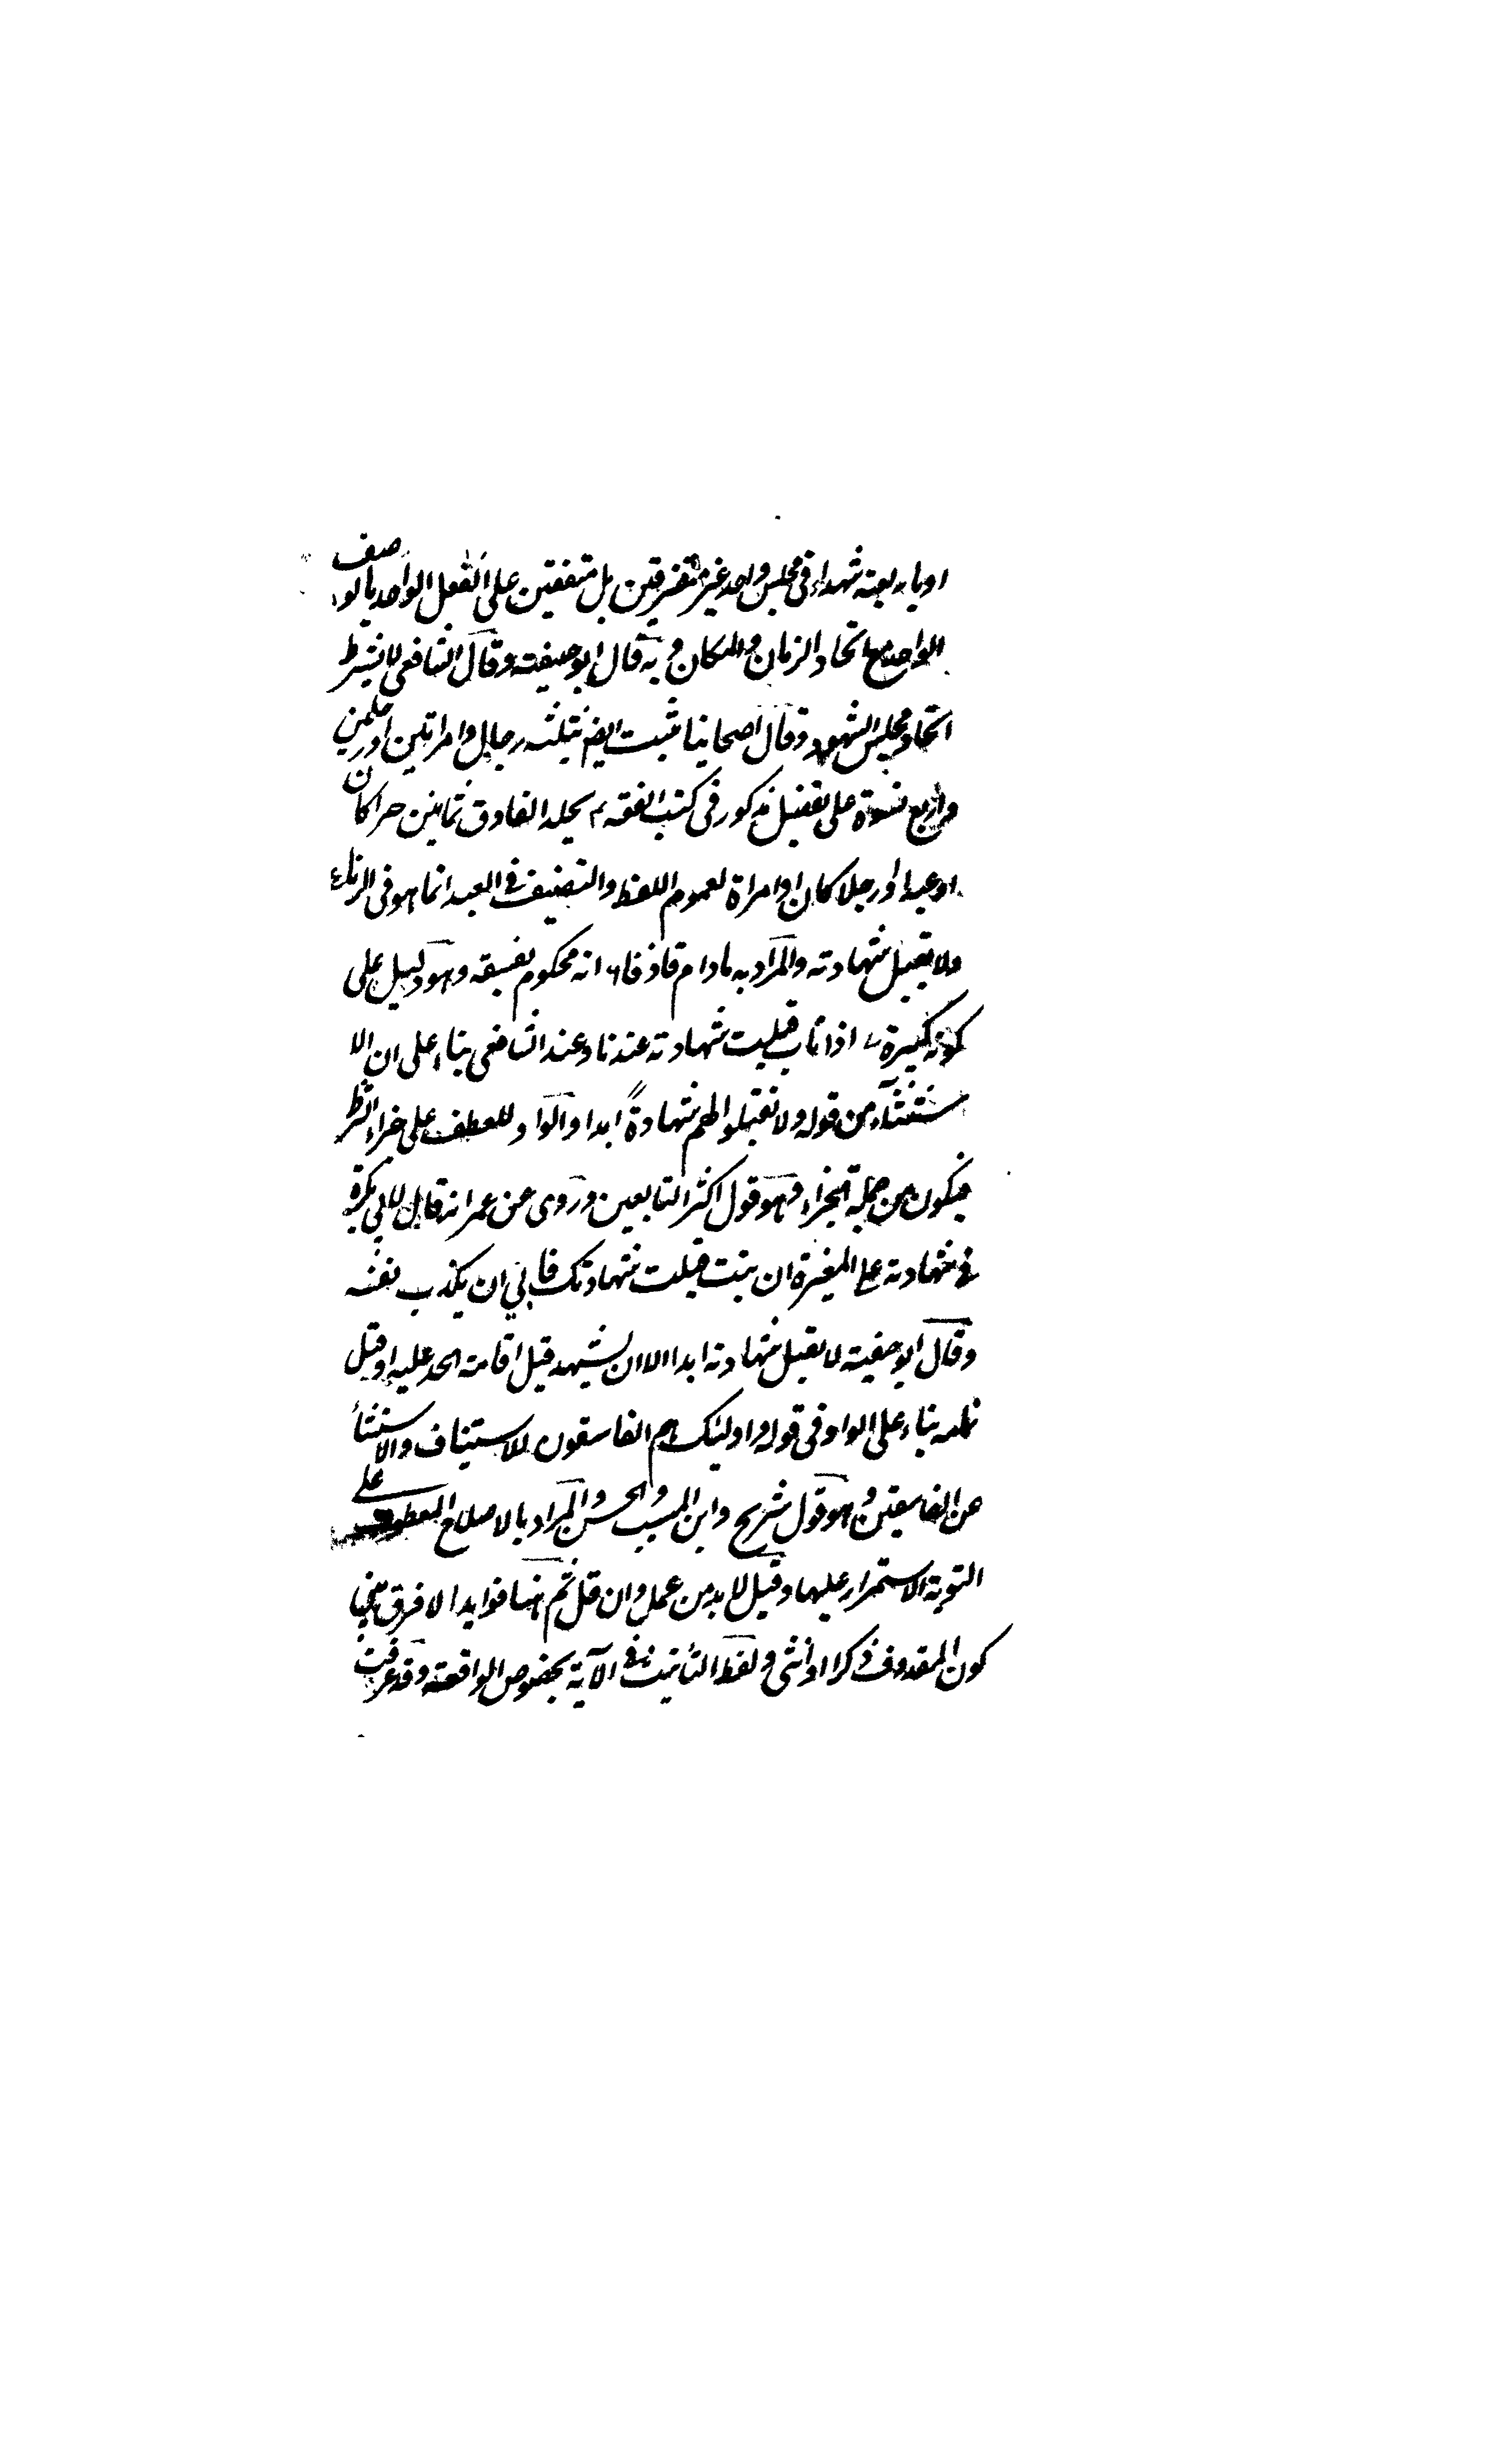 او باربعة شهداء في مجلس واحد غير متفرقين بل متفقين على الفعل الواحد بالوصف
الواحد مع اتحاد الزمان والمكان وبه قال ابوحنيفة وقال الشافعي لا يشترط
اتحاد مجلس الشهود وقال اصحابنا يثبت ايضا بثلثة رجال وامراتين او رجلين
واربع نسوة على تفصيل مذكور في كتب الفقه يجلد القاذف ثمانين حرا كان
او عبدا او رجلا كان او امراة لعموم اللفظ والتنصيف في العبد انما هو في الزنا ع
ولا يقبل شهادته والمراد به مادام قاذفا انه محكوم بفسقه وهو دليل على
كونه كبيرة اذا تاب قبلت شهادته عندنا وعند الشافعي بناء على ان الا
ستثناء من قوله ولا تقبلوا لهم شهادةً ابدا والواو للعطف على جزاء الشرط
فيكون من جملة الجزاء وهو قول اكثر التابعين وروى عن عمر انه قال لابي بكرة
في شهادته على المغيرة ان تبت قبلت شهادتك فابي ان يكذب نفسه
وقال ابوحنيفة لا يقبل شهادته ابدا الا ان يشهد قبل اقامة الحد عليه او قبل
تمامه بناء على الواو في قوله واولئك هم الفاسقون للاستيناف والاستثناء
عن الفاسقين وهو قول شريح وابن المسيب والحسن والمراد بالاصلاح المعطوف على
التوبة الاستمرار عليها وقيل لا بد من عمل وان قل ثم هنا فوايد ا لا فرق بين
كون المقذوف ذكرا او انثى ولفظ التأنيث في الآية بخصوص الواقعة وقد عرفت